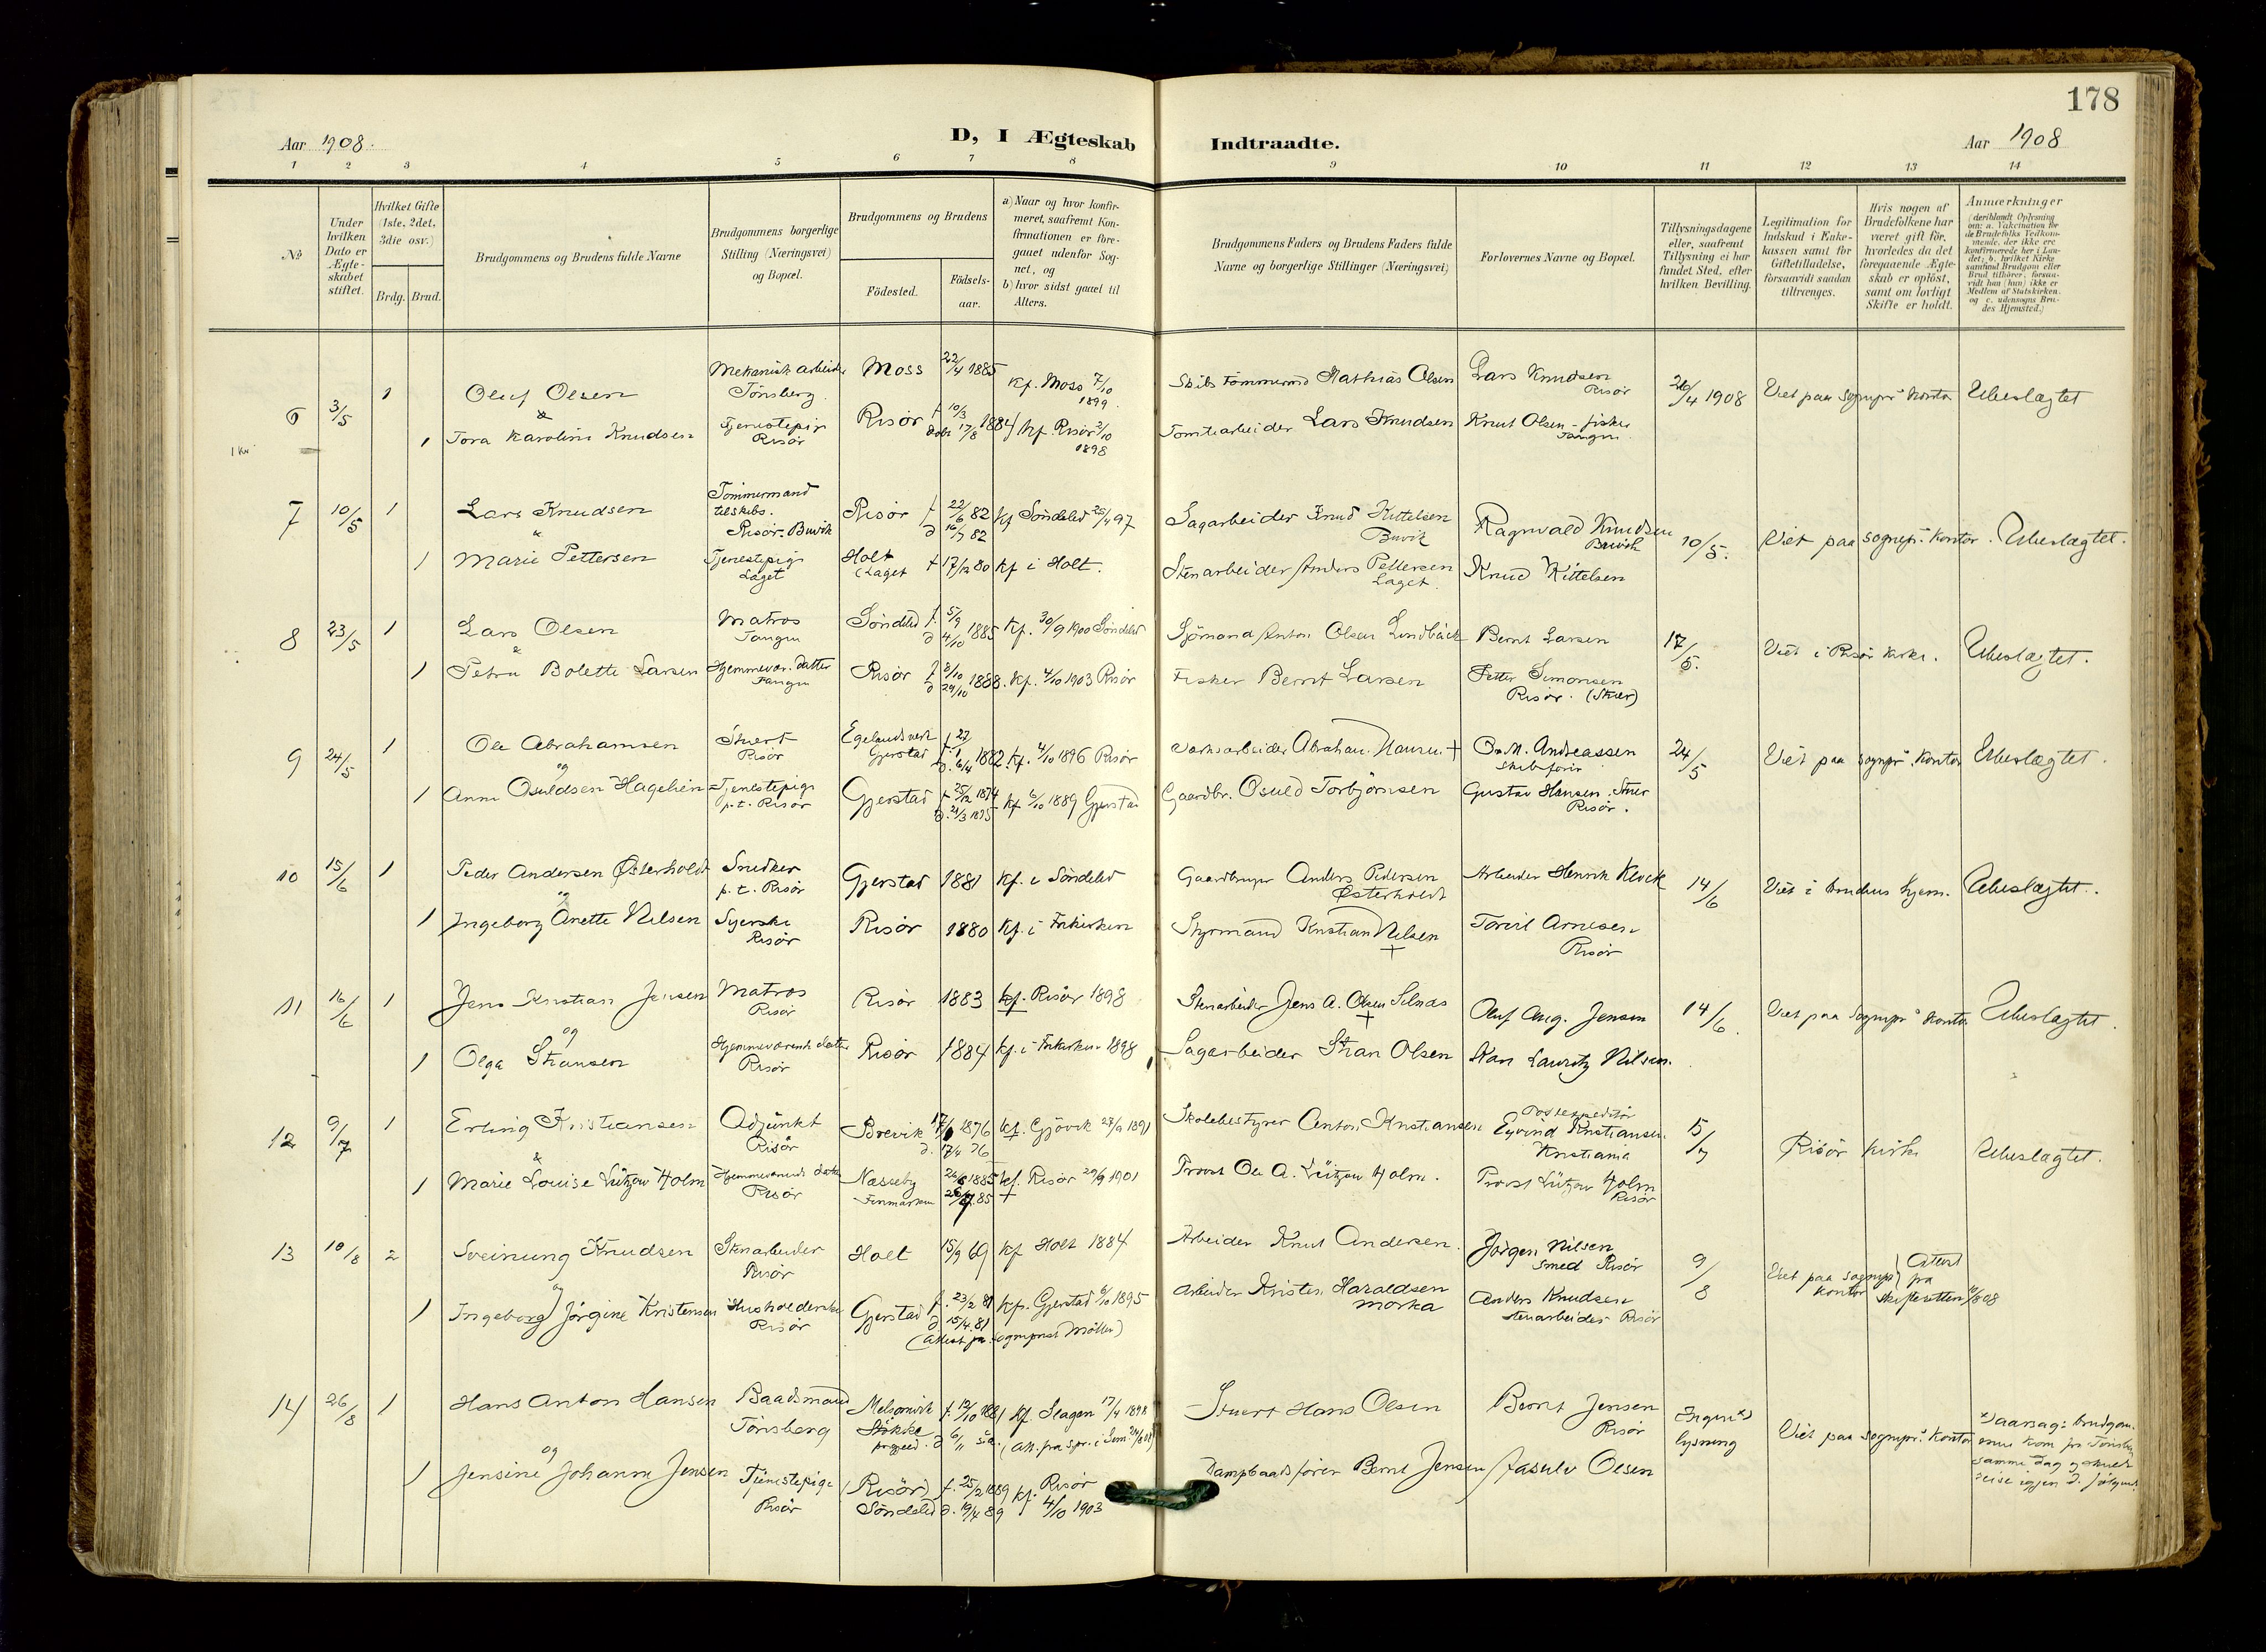 178
Aar 1908.
D, I Ægteskab Indtraadte.
Aar 1908
1 2 3 4 5 6 7 8 9 10 11 12 13 14
№
Under hvilken Dato er Ægteskabet stiftet.
Hvilket Gifte (1ste, 2det, 3die osv.)
Brdg. Brud.
Brudgommens og Brudens fulde Navne
Brudgommens borgerlige Stilling (Næringsvei) og Bopæl.
Brudgommens og Brudens
Födested.
Födsels-aar.
a) Naar og hvor konfir-
meret, saafremt Kon-
firmationen er fore-
gaaet udenfor Sog-
net, og
b) hvor sidst gaaet til
Alters.
Brudgommens Faders og Brudens Faders fulde
Navne og borgerlige Stillinger (Næringsvei)
Forlovernes Navne og Bopæl.
Tillysningsdagene
eller, saafremt
Tillysning ei har
fundet Sted, efter
hvilken Bevilling.
Legitimation for
Indskud i Enke-
kassen samt for
Giftetilladelse,
forsaavidt saadan
tiltrænges.
Hvis nogen af
Brudefolkene har
været gift för,
hvorledes da det
foregaaende Ægte-
skab er oplöst,
samt om lovligt
Skifte er holdt.
Anmærkninger
(deriblandt Oplysning
om: a. Vaccination for
de Brudefolks Vedkom-
mende, der ikke ere
konfirmerede her i Lan-
det; b. hvilket Kirke-
samfund Brudgom eller
Brud tilhörer, forsaa-
vidt han (hun) ikke er
Medlem af Statskirken.
og c. udensogns Bru-
des Hjemsted.)
6 3/5 1 Oluf Olsen Mekanisk arbeider Tønsberg. Moss 22/4 1885 Kf. Moss 7/10 1899. Mathias Olsen Lars Knudsen Risør 26/4 1908 Viet paa sognepr. Kontor Ubeslægtet
&
1 Tora Karoline Knudsen Tjenestepige Risør Risør f 10/3 døbt 17/8 1884 Kf. Risør 2/10 1898 Tomtearbeider Lars Knudsen Knut Olsen - fisker Tangen
1 Kr
7 10/5 1 Lars Knudsen Tømmermand tilskibs. Risør-Buvik Risør f 22/6 82 d 16/7 82 Kf Søndeled 25/4 97 Sagarbeider Knud Kittelsen Buvik Ragnvald Knudsen Buvik 10/5. Viet paa sognepr. Kontor. Ubeslægtet.
&
1 Marie Pettersen Tjenestepige Laget Holt (Laget f 17/12 80 Kf i Holt. Stenarbeider Anders Pettersen Laget. Knud Kittelsen
8 23/5 1 Lars Olsen Matros Tangen Søndeled f. 5/9 d 4/10 1885 Kf. 30/9 1900 Søndeled Sjömand Anton Olsen Lindbäck Bernt Larsen 17/5. Viet i Risør Kirke. Ubeslægtet.
&
1 Petra Bolette Larsen Hjemmevær. datter Tangen Risør f 8/10 d 29/10 1888. Kf. 4/10 1903 Risør Fisker Bernt Larsen Petter Simonsen Risør.
9 24/5 1 Ole Abrahamsen Stuert Risør Egelands verk Gjerstad 1882. Kf. 4/10 1896 Risør Verksarbeider Abraham + Andreassen Skibsfører 24/5 Viet paa sognepr. Kontor Ubeslægtet.
og
1 Anne Osuldsen Hagelien Tjenestepige p.t. Risør Gjerstad f 25/12 1874 d. 21/3 1875 Kf 6/10 1889 Gjerstad Gaardbr. Osuld Torbjørnsen Gustav Hansen. Risør.
10 15/6 1 Peder Andersen Østerholdt Snedker p.t. Risør Gjerstad 1881 Kf. i Søndeled Gaardbruger Anders Pedersen Østerholdt Arbeider Henrik 14/6 Viet i brudens hjem. Ubeslægtet.
og
1 Ingeborg Anette Nilsen Syerske Risør Risør 1880 Kf. i Frikirken Styrmand Kristian Nilsen + Arnesen Risør
11 16/6 1 Jens Kristian Jensen Matros Risør Risør 1883 Kf. Risør 1898 Stenarbeider Jens A. Olsen Selnæs + Oluf Aug. Jensen 14/6. Viet paa Sognepr. Kontor Ubeslægtet.
og
1 Olga Stiansen Hjemmeværende datter Risør Risør 1884 Kf. i Frikirken 1898 Sagarbeider Stian Olsen Karl Lauritz Nilsen.
12 9/7 1 Erling Kristiansen Adjunkt Risør Brevik 1876 d. 17/4 76 Kf. Gjøvik 27/9 1891 Skolebestyrer Anton Kristiansen Postexpeditør Eyvind Kristiansen Kristiania 5/7 Risør Kirke Ubeslægtet.
&
1 Marie Louise Lützow Holm Hjemmeværende datter Risør Næsseby Finmarken 1885 Kf. Risør 29/9 1901 + Provst Ole A. Lützow Holm. Provst Lützow Holm Risør
13 10/8 2 Sveinung Knudsen Stenarbeider Risør Holt 15/9 69 Kf Holt 1884 Arbeider Knut Andersen. Jørgen Nilsen Smed Risør 9/8 Viet paa sognepr. Kontor (Attest fra Skifteretten 10/8 08
og
1 Ingeborg Jørgine Kristensen Husholderske Risør Gjerstad f. 23/2 81 d 15/4 81 Kf. Gjerstad 6/10 1895 Arbeider Kristen Haraldsen Morka Anders Knudsen Stenarbeider Risør
(Attest fra sognepræst Møller)
14 26/8 1 Hans Anton Hansen Baadsmand Tønsberg Melsomvik Stokke prgjeld. f. 19/10 1881 d 6/11 s.a. Kf. Slagen 17/4 1898 (Att. fra spr. i Sem Stuert Hans Olsen Bernt Jensen Risør Ingen x) lysning Viet paa sognepr. Kontor x) aarsag: brudgommen kom fra Tønsberg samme dag og skulde reise igjen d. følgende
og
1 Jensine Johanne Jensen Tjenestepige Risør (Risør) Søndeled f. 25/2 1889 d. 19/4 89 Kf. Risør 4/10 1903 Dampbaadsfører Bernt Jensen Olsen